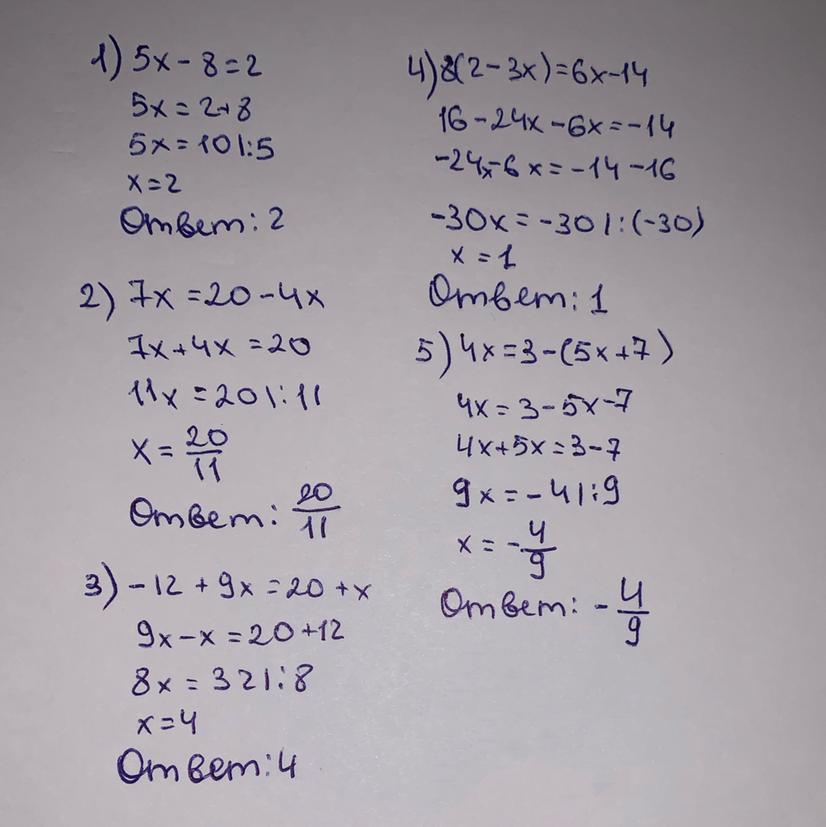 1) 5x - 8 = 2
5x = 2+8
5x = 10 |:5
x = 2
Ответ: 2
2) 7x = 20 - 4x
7x + 4x = 20
11x = 20 |:11
x = 20/11
Ответ: 20/11
3) -12 + 9x = 20 + x
9x - x = 20 + 12
8x = 32 |:8
x = 4
Ответ: 4
4) 8(2 - 3x) = 6x - 14
16 - 24x - 6x = -14
-24x - 6x = -14 - 16
-30x = -30 |:(-30)
x = 1
Ответ: 1
5) 4x = 3 - (5x + 7)
4x = 3 - 5x - 7
4x + 5x = 3 - 7
9x = -4 |:9
x = -4/9
Ответ: -4/9